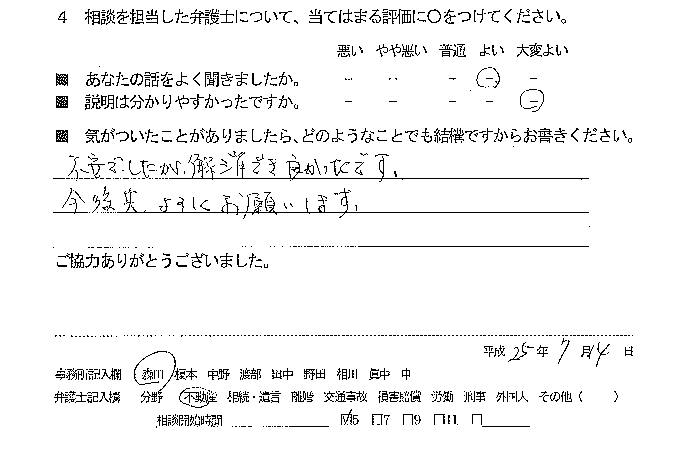 4 相談を担当した弁護士について、当てはまる評価に○をつけてください。
悪い やや悪い 普通 よい 大変よい
あなたの話をよく聞きましたか。
説明は分かりやすかったですか。
気がついたことがありましたら、どのようなことでも結構ですからお書きください。
不安でしたが、解消でき良かったです。
今後共、よろしくお願いします。
ご協力ありがとうございました。
平成 25 年 7 月 14 日
事務所記入欄 森田 榎本 中野 渡部 田中 野田 相川 眞中 中
弁護士記入欄 分野 不動産 相続・遺言 離婚 交通事故 損害賠償 労働 刑事 外国人 その他( )
相談開始時間 ☑5 □7 □9 □11 □